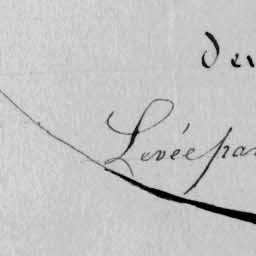 Levée par